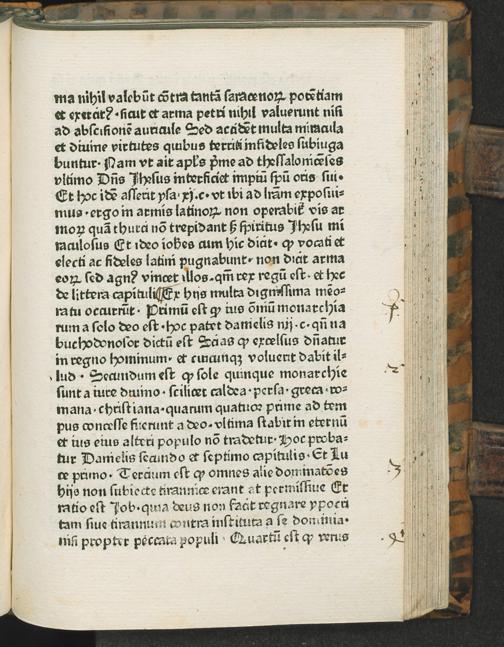 ma nihil valebūt cōtra tantā saracenoꝝ potētiam
et exercitꝰ · sicut et arma petri nihil valuerunt nisi
ad abscisionē auricule Sed accidēt multa miracula
et diuine virtutes quibus territi infideles subiuga
buntur · Nam vt ait apl̄s p̄me ad thessalonicēses
vltimo Dn̄s Ihesus interficiet impiū spū oris sui ·
Et hoc idē asserit ysa · xj · c · vt ibi ad l̄ram exposui-
mus · ergo in armis latinoꝝ non operabit̄ vis ar
moꝝ quā thurci nō trepidant sꝫ spiritus Ihesu mi
raculosus Et ideo ioh̄es cum hic dicit · ꝙ vocati et
electi ac fideles latini pugnabunt · non dicit arma
eoꝝ sed agnꝰ vincet illos · qm̄ rex regū est · et hec
de littera capituli Ex hijs multa dignissima mēo-
ratu occurrūt · Primū est ꝙ ius om̄iū monarchia
rum a solo deo est · hoc patet danielis iiij · c · qn̄ na
buchodonosor dictū est Scias ꝙ excelsus dn̄atur
in regno hominum · et cuicunqꝫ voluerit dabit il-
lud · Secundum est ꝙ sole quinque monarchie
sunt a iure diuino · scilicet caldea · persa · greca · ro-
mana · christiana · quarum quatuor prime ad tem
pus concesse fuerunt a deo · vltima stabit in eternū
et ius eius alteri populo nō tradetur · Hoc proba-
tur Danielis secundo et septimo capitulis · Et Lu
ce primo · Tercium est ꝙ omnes alie dominatōes
hijs non subiecte tirannice erant at permissiue Et
ratio est Iob · quia deus non facit regnare ypocri
tam siue tirannum contra instituta a se dominia ·
nisi propter peccata populi · Quartū est ꝙ verus
2
3